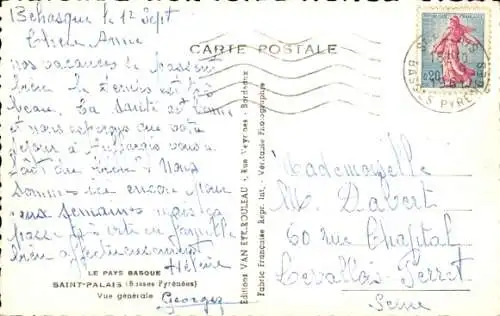 Béhasque le 1er Sept
Chère Annie
nos vacances se passent
bien le temps est très
beau. La santé est bonne
et nous espérons que votre
séjour à vous a
fait du bien. Nous
sommes ici encore pour
deux semaines après ça
sera en famille
bien affectueusement
Hélène
Georges
LE PAYS BASQUE
SAINT-PALAIS (Basses Pyrénées)
Vue générale
CARTE POSTALE
Editions VAN EYK-ROULEAU - Rue Veyrines - Bordeaux
Fabric. Française Repr. Int. - Véritable Photographie
0,20
BASSES PYRENEES
Mademoiselle
M. Davert
60 rue Chaptal
Levallois-Perret
Seine